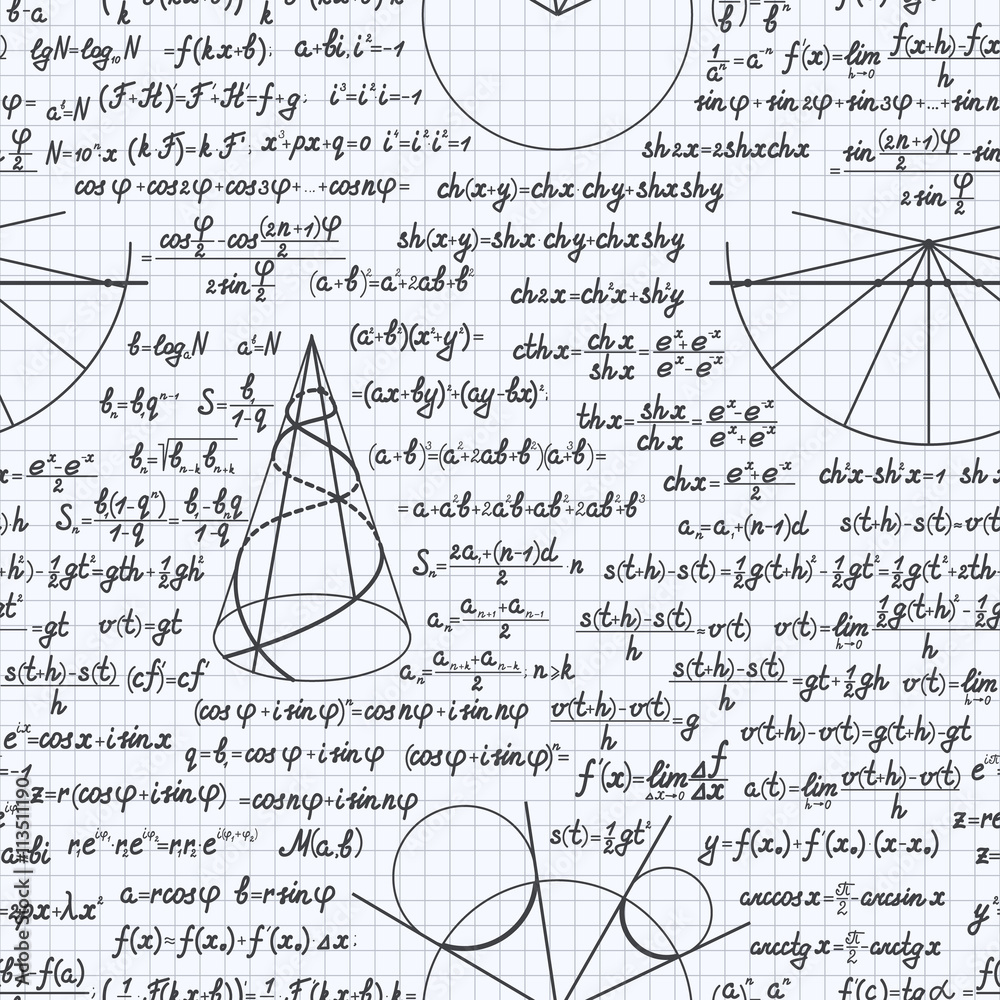 lgN=log₁₀N =f(kx+b); a+bi, i²=-1
f'(x)=lim h→0 f(x+h)-f(x h
1/aⁿ=a⁻ⁿ
φ= aᵋ=N (F+H)'=F'+H'=f+g; i³=i²·i=-1
sinφ+sin2φ+sin3φ+...+sin n
φ/2 N=10ⁿ·x (k·F)=k·F'; x³+px+q=0 i⁴=i²·i²=1
sh2x=2shxchx
= sin (2n+1)φ/2 -sin 2sin φ/2
cosφ+cos2φ+cos3φ+...+cosnφ= ch(x+y)=chx·chy+shxshy
= cos φ/2 -cos (2n+1)φ/2 2sin φ/2
sh(x+y)=shx·chy+chxshy
(a+b)²=a²+2ab+b²
ch2x=ch²x+sh²y
b=logₐN aᵋ=N (a²+b²)(x²+y²)=
cthx= chx/shx = eˣ+e⁻ˣ/eˣ-e⁻ˣ
bₙ=b₁qⁿ⁻¹ S= b₁/1-q =(ax+by)²+(ay-bx)²;
thx= shx/chx = eˣ-e⁻ˣ/eˣ+e⁻ˣ
bₙ=√bₙ₋ₖbₙ₊ₖ (a+b)³=(a²+2ab+b²)(a³b)=
x= eˣ-e⁻ˣ/2
chx= eˣ+e⁻ˣ/2 ch²x-sh²x=1 sh
)·h Sₙ= b₁(1-qⁿ)/1-q = b₁-bₙq/1-q =a+a²b+2a²b+ab²+2ab²+b³
aₙ=a₁+(n-1)d s(t+h)-s(t)≈v(t
+h²)-½gt²=gth+½gh² Sₙ= 2a₁+(n-1)d/2 ·n s(t+h)-s(t)=½g(t+h)²-½gt²=½g(t²+2th+
gt² =gt v(t)=gt aₙ= aₙ₊₁+aₙ₋₁/2
s(t+h)-s(t)/h ≈v(t) v(t)=lim h→0 ½g(t+h)²-½g h
s(t+h)-s(t)/h (cf)'=cf' aₙ= aₙ₊ₖ+aₙ₋ₖ/2 ; n≥k
s(t+h)-s(t)/h =gt+½gh v(t)=lim h→0
(cosφ+isinφ)ⁿ=cosnφ+isin nφ v(t+h)-v(t)/h =g
eⁱˣ=cosx+isinx v(t+h)-v(t)=g(t+h)-gt
q=b₁=cosφ+isinφ (cosφ+isinφ)ⁿ=
=-1 f'(x)=lim Δx→0 Δf/Δx a(t)=lim h→0 v(t+h)-v(t)/h
z=r(cosφ+isinφ) =cosnφ+isinnφ
a+bi r₁eⁱᵠ¹·r₂eⁱᵠ²=r₁r₂·eⁱ⁽ᵠ¹⁺ᵠ²⁾ M(a,b) s(t)=½gt² y=f(x₀)+f'(x₀)·(x-x₀)
a=rcosφ b=rsinφ arccosx=π/2-arcsinx
f(x)≈f(x₀)+f'(x₀)·Δx; arcctgx=π/2-arctgx
-f(a) (1/k F(kx+b))'=1/k F'(kx+b)·k= f'(c)=tgα=
Adobe Stock | #1135111190